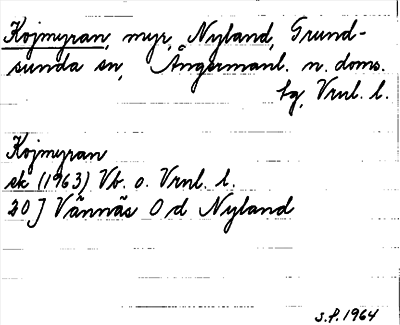 Kojmyran, myr, Nyland, Grund-
sunda sn, Ångermanl. n. doms.
tg, Vrnl. l.
Kojmyran
sk (1963) Vb. o. Vrnl. l.
20 J Vännäs 0 d Nyland
s.f. 1964